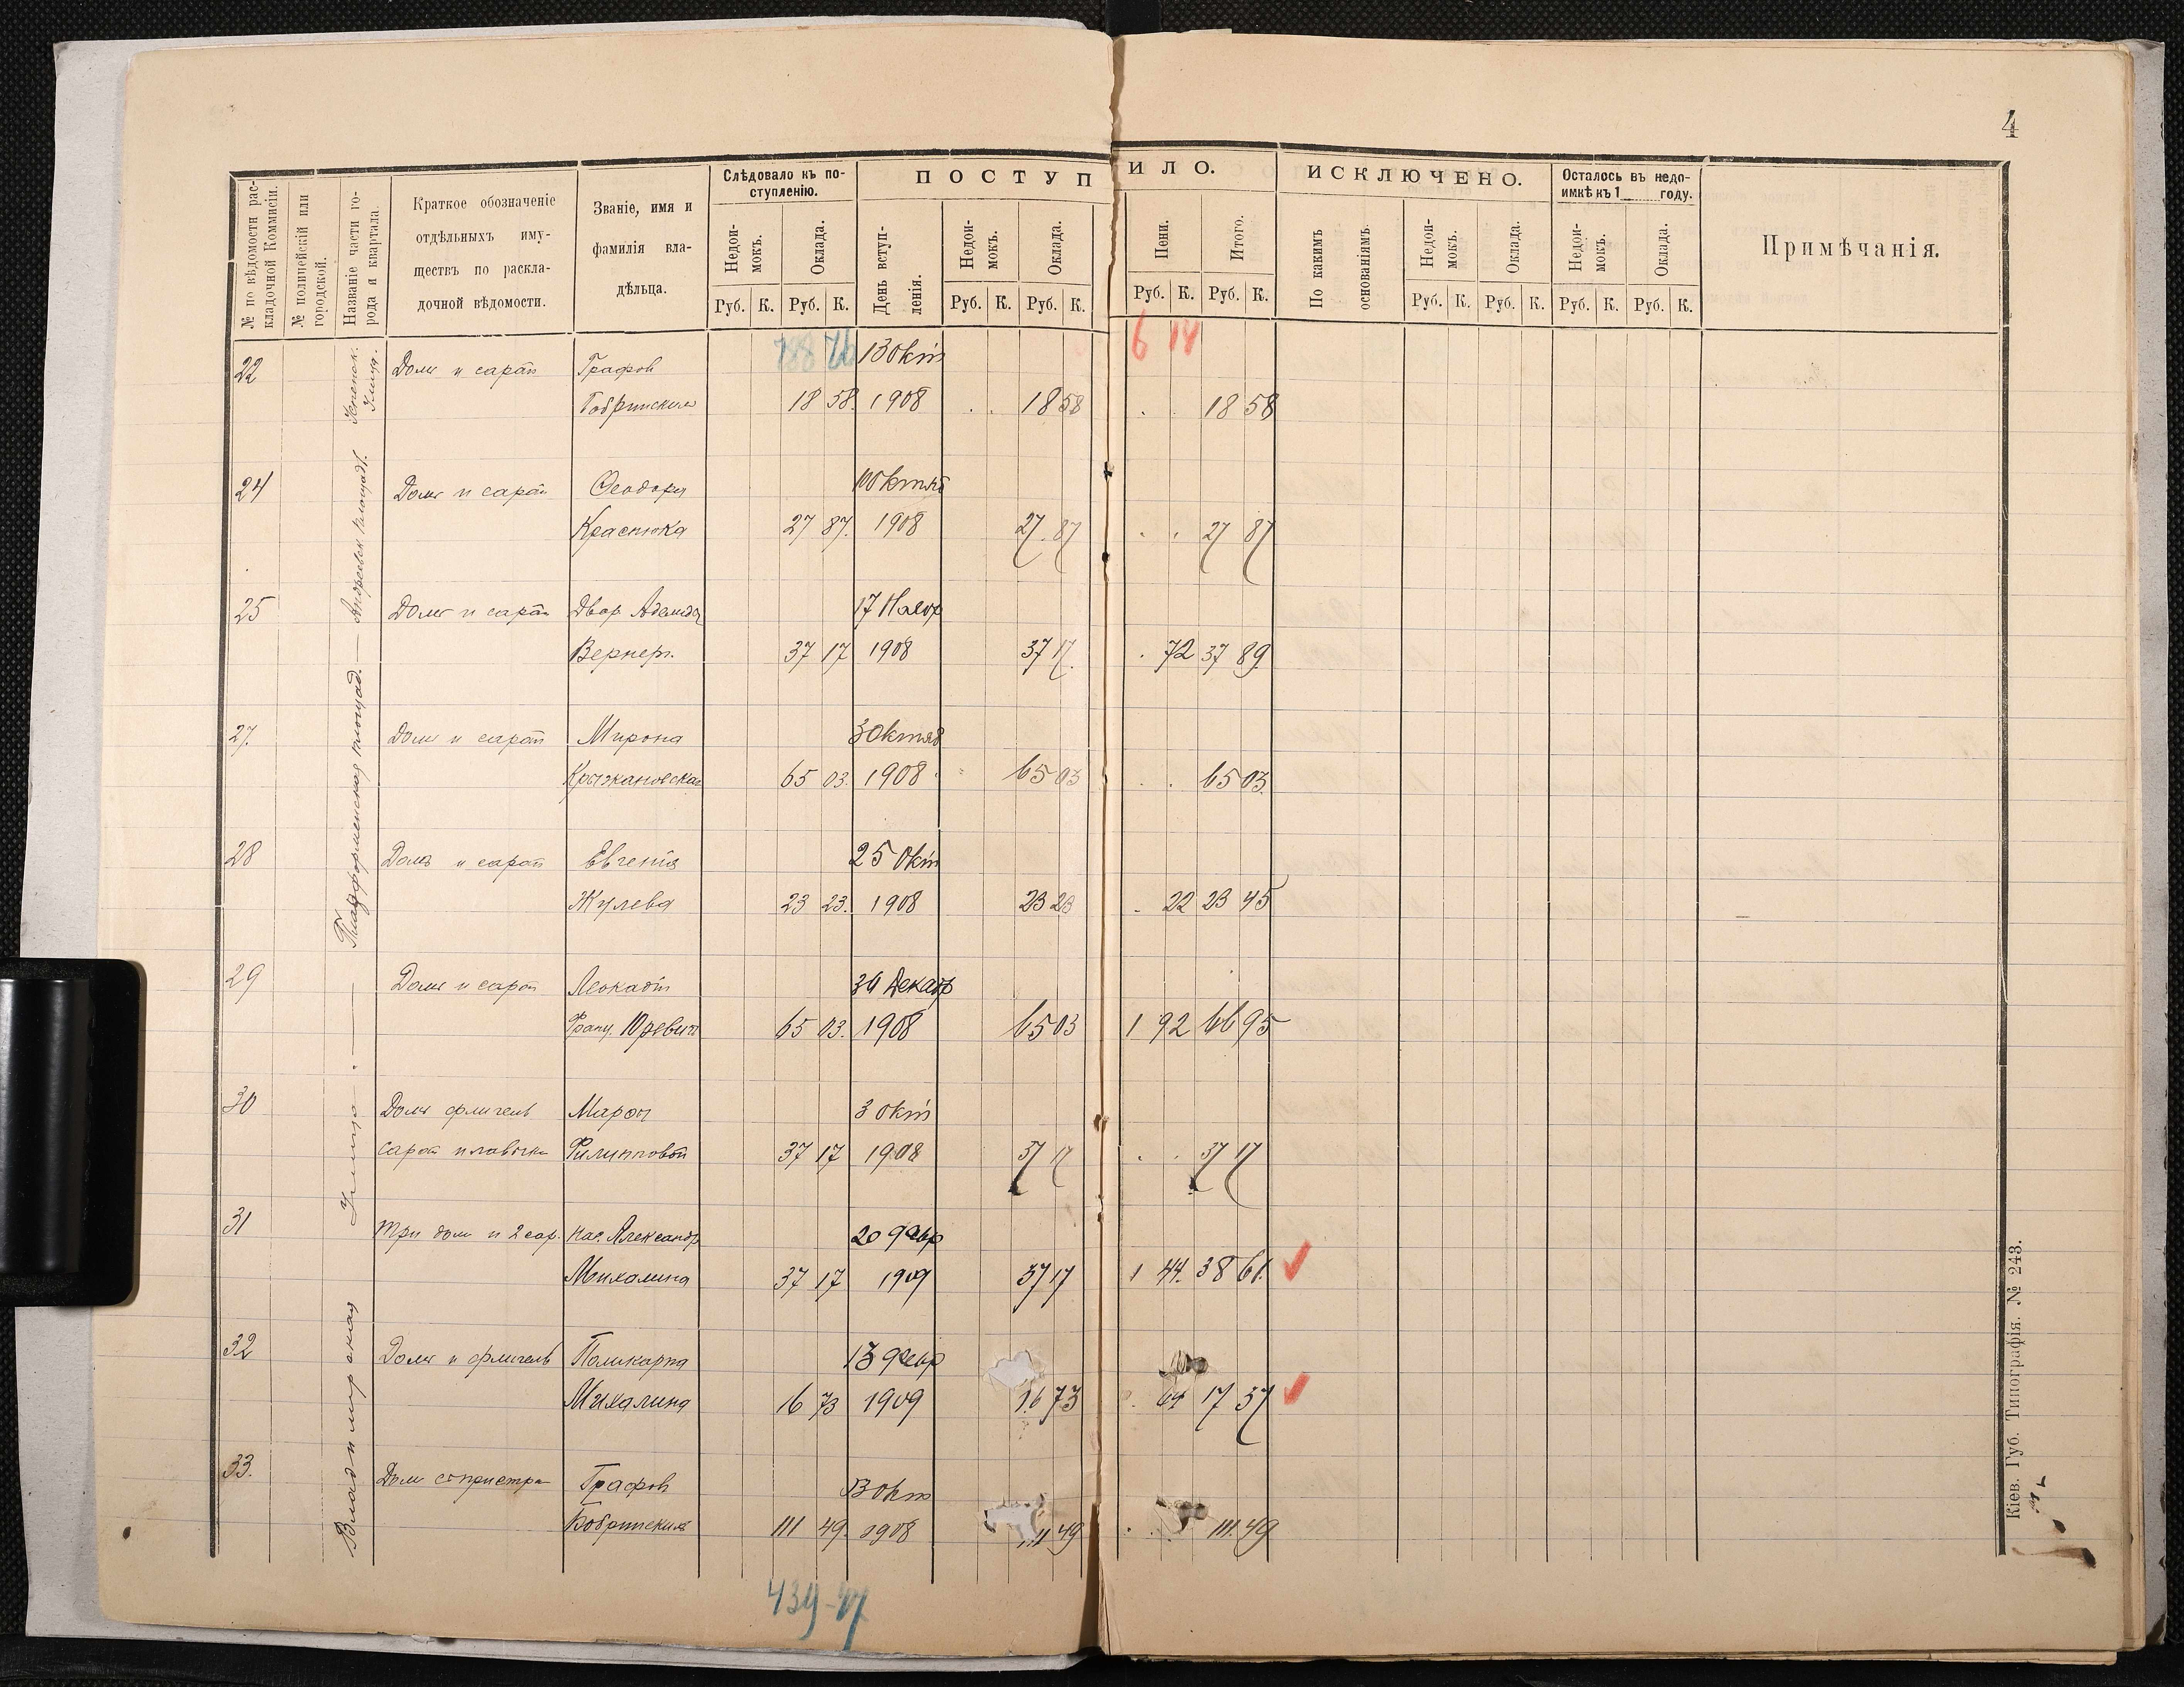 4
№ по вѣдомости рас-
кладочной Коммисіи.
№ полицейскій или
городской.
Названіе части го-
рода и квартала.
Краткое обозначеніе
отдѣльныхъ иму-
ществъ по раскла-
дочной вѣдомости.
Званіе, имя и
фамилія вла-
дѣльца.
Слѣдовало къ по-
ступленію.
Недои-
мокъ.
Оклада.
Руб. К. Руб. К.
ПОСТУПИЛО.
День вступ-
ленія.
Недои-
мокъ.
Оклада.
Пени.
Итого.
Руб. К. Руб. К. Руб. К. Руб. К.
ИСКЛЮЧЕНО.
По какимъ
основаніямъ.
Недои-
мокъ.
Оклада.
Руб. К. Руб. К.
Осталось въ недо-
имкѣ къ 1 году.
Недои-
мокъ.
Оклада.
Руб. К. Руб. К.
Примѣчанія.
6 14
22 Домъ и сарай Графов 13 окт
18 58. 1908 18 58 18 58
24 Домъ и сарай Ѳеодора 10 Октяб
Краснюка 27 87. 1908 27. 87 27 87
Андреевск площад.
25 Домъ и сарай Двор. 17 Ноябр
Вернеръ. 37 17 1908 37 17. 72 37 89
27. Домъ и сарай Мирона 3 Октяб
Крыжановская 65 03. 1908 65 03 65 03.
Платформенская площад.
28 Домъ и сарай Евгенія 25 Окт
Жулева 23 23. 1908 23 23 22 23 45
29 Домъ и сарай Леокадіи Декабр
Франц. 65 03. 1908 65 03 1 92 66 95
30 Домъ флигель Маріи 3 окт
сарай и лавочка Филипповой 37 17 1908 37 17 37 17
Улица
31 Три дома и 2 сар. Александр 20 февр
Михалина 37 17 1909 37 17 1 44. 38 61.
32 Домъ и флигель Поликарпа 13 февр
Михалина 16 73 1909 16 73 64 17 37
Владимирская
33. Домъ Графов 13 окт
Бобринских 111 49. 1908 111 49 111. 49
Кіев. Губ. Типографія. № 243.